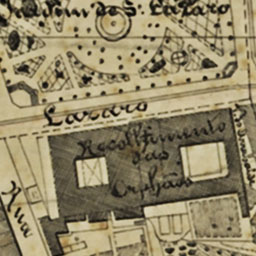 Jardim de S. Lazaro
Lazaro
Recolhimento
das
Orphãas
Rua